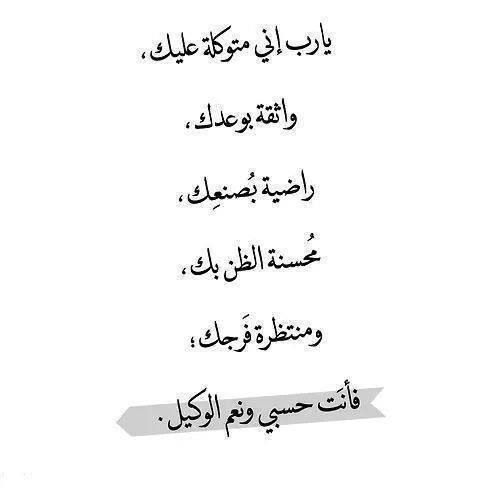 يارب إني متوكلة عليك،
واثقة بوعدك،
راضية بُصنعِك،
مُحسنة الظن بك،
ومنتظرة فَرجك؛
فأنَت حسبي ونعم الوكيل.